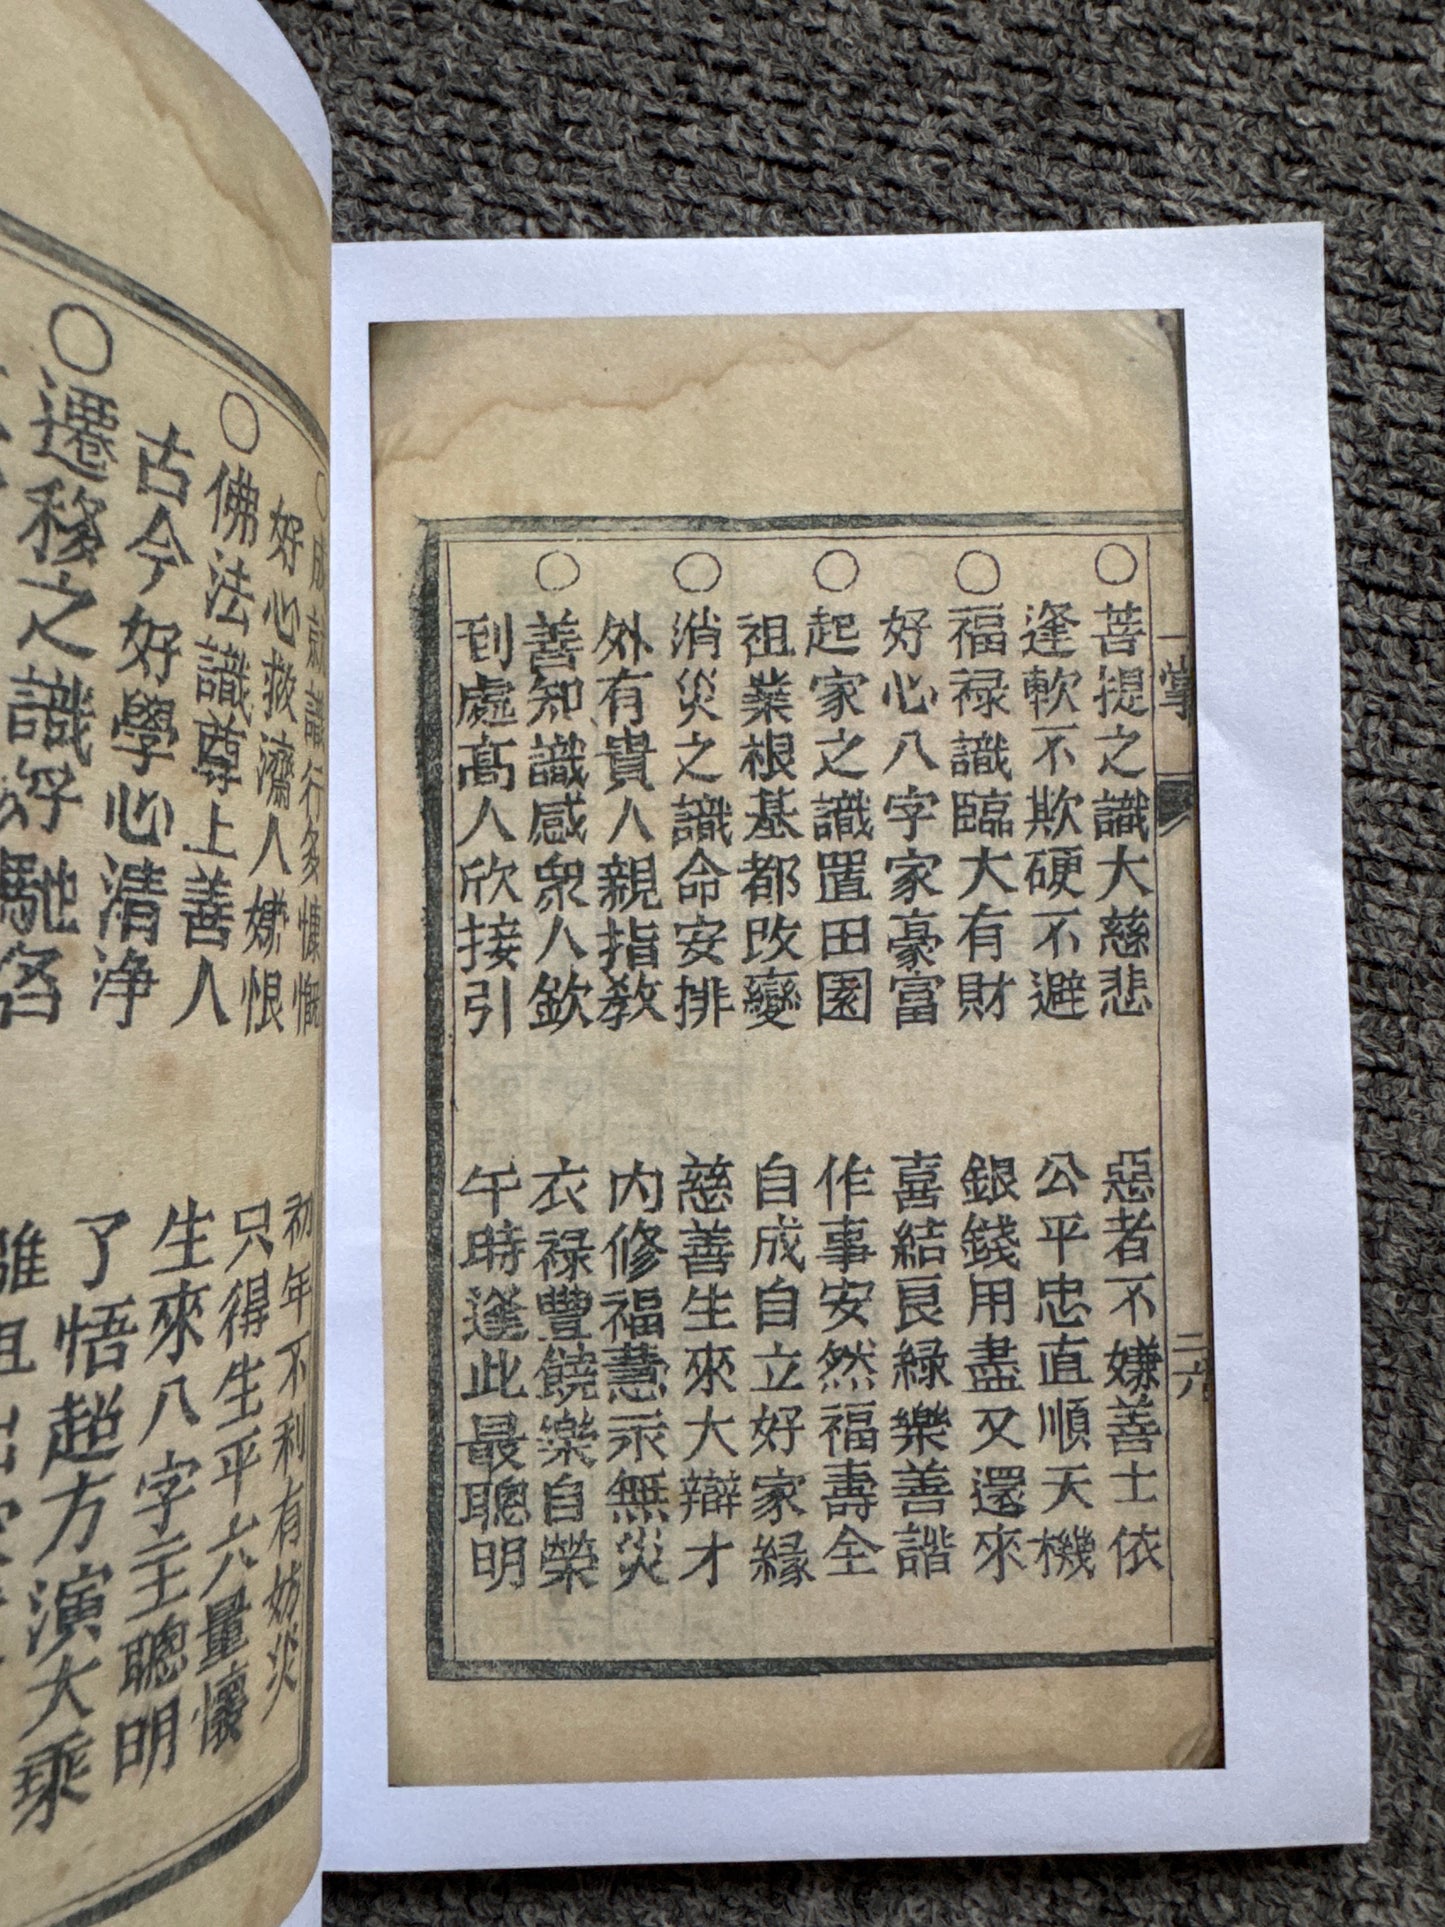 一掌
二六
○菩提之識大慈悲　惡者不嫌善士依
逢軟不欺硬不避　公平忠直順天機
○福禄識臨大有財　銀錢用盡又還來
好心八字家豪富　喜結良緑樂善諧
○起家之識置田園　作事安然福壽全
祖業根基都改變　自成自立好家緣
○消災之識命安排　慈善生來大辯才
外有貴人親指教　內修福慧永無災
○善知識感衆人欽　衣禄豐饒樂自榮
到處高人欣接引　午時逢此最聰明
初年不利有妨災
好心救濟人嫌恨　只得生平六量懷
○佛法識尊上善人　生來八字主聰明
古今好學心清淨　了悟超方演大乘
○遷移之識好馳名